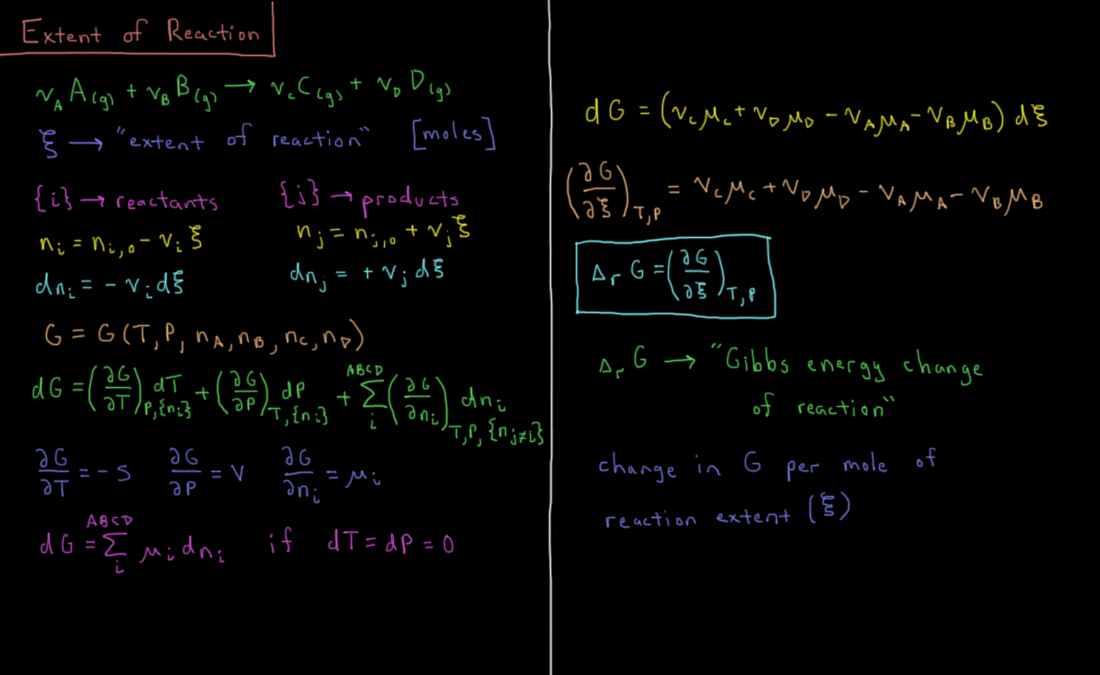 Extent of Reaction
ν_A A(g) + ν_B B(g) → ν_c C(g) + ν_D D(g)
ξ → "extent of reaction" [moles]
{i} → reactants {j} → products
n_i = n_i,0 - ν_i ξ n_j = n_j,0 + ν_j ξ
dn_i = - ν_i dξ dn_j = + ν_j dξ
G = G(T, P, n_A, n_B, n_C, n_D)
dG = (∂G/∂T)_P,{n_i} dT + (∂G/∂P)_T,{n_i} dP + Σ_i^ABCD (∂G/∂n_i)_T,P,{n_j≠i} dn_i
∂G/∂T = -S ∂G/∂P = V ∂G/∂n_i = μ_i
dG = Σ_i^ABCD μ_i dn_i if dT = dP = 0
dG = (ν_c μ_c + ν_D μ_D - ν_A μ_A - ν_B μ_B) dξ
(∂G/∂ξ)_T,P = ν_c μ_c + ν_D μ_D - ν_A μ_A - ν_B μ_B
Δ_r G = (∂G/∂ξ)_T,P
Δ_r G → "Gibbs energy change
of reaction"
change in G per mole of
reaction extent (ξ)